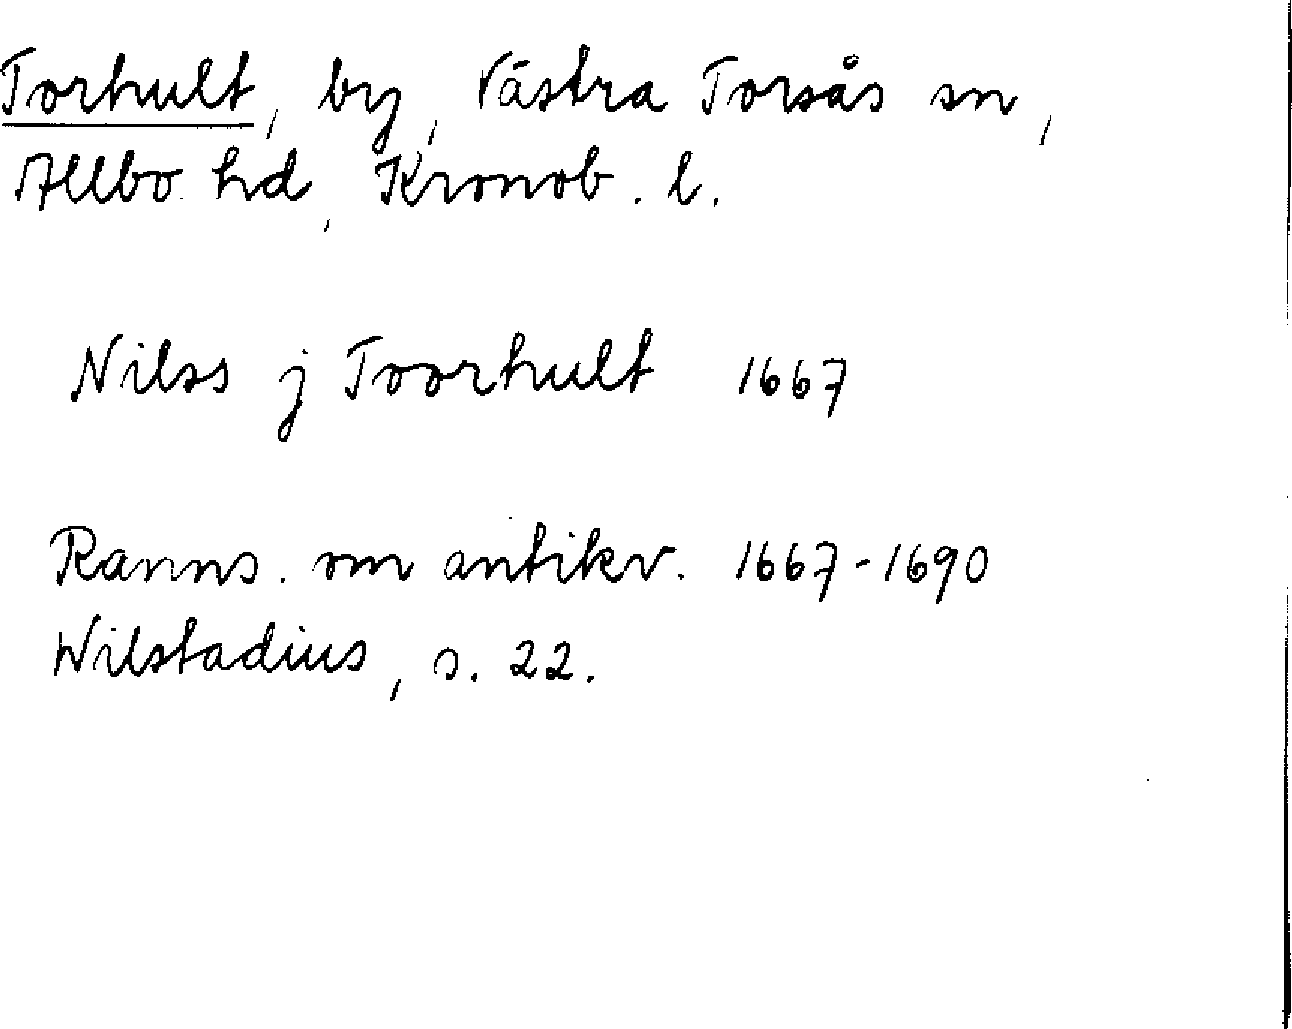 Torhult, by, Västra Torsås sn,
Allbo hd, Kronob. l.
Nilss j Toorhult 1667
Ranns. om antikv. 1667-1690
Wilstadius, s. 22.